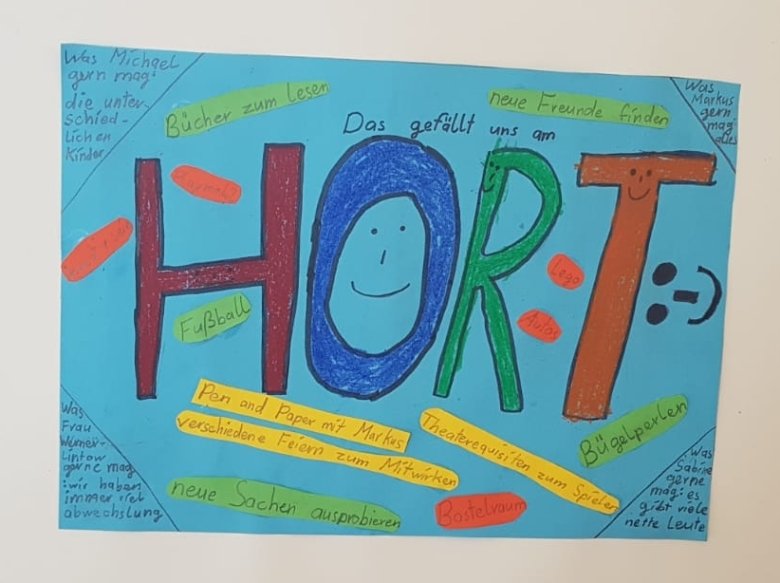 Was Michael
gern mag:
die unter-
schied-
lichen
Kinder
Bücher zum Lesen
neue Freunde finden
Was
Markus
gern
mag:
alles
Das gefällt uns am
HORT
Fußball
Lego
Autos
Pen and Paper mit Markus
verschiedene Feiern zum Mitwirken
Theaterequisiten zum Spielen
Bügelperlen
neue Sachen ausprobieren
Bastelraum
Was
Frau
Lintow
gerne mag
:wir haben
immer viel
abwechslung
Was
Sabine
gerne
mag: es
gibt viele
nette Leute